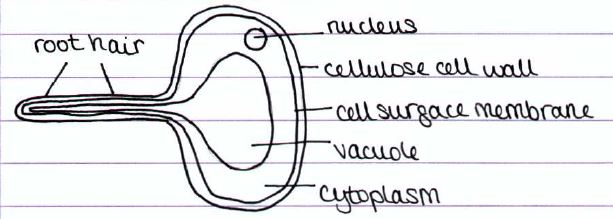 nucleus
root hair
cellulose cell wall
cell surface membrane
vacuole
cytoplasm